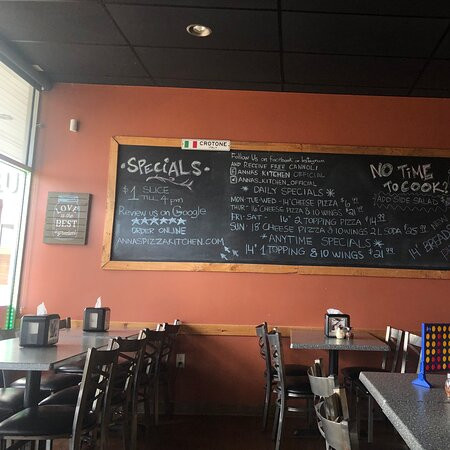 CROTONE
SPECIALS
$1 SLICE
TILL 4pm
Review us on Google
ORDER ONLINE
ANNASPIZZAKITCHEN.COM
Follow Us on Facebook or Instagram
AND RECEIVE FREE CANNOLI
ANNAS KITCHEN OFFICIAL
@ANNAS_KITCHEN_OFFICIAL
* DAILY SPECIALS *
MON-TUE-WED - 14" CHEESE PIZZA $6
THUR - 16" CHEESE PIZZA & 10 WINGS $20
FRI-SAT - 16" 2 TOPPING PIZZA $14.99
SUN - 18" CHEESE PIZZA & 10 WINGS, 2L SODA $25
* ANYTIME SPECIALS *
14" 1 TOPPING & 10 WINGS $21
NO TIME
TO COOK?
ADD SIDE SALAD
BREAD
14"
LOVE
is the
BEST